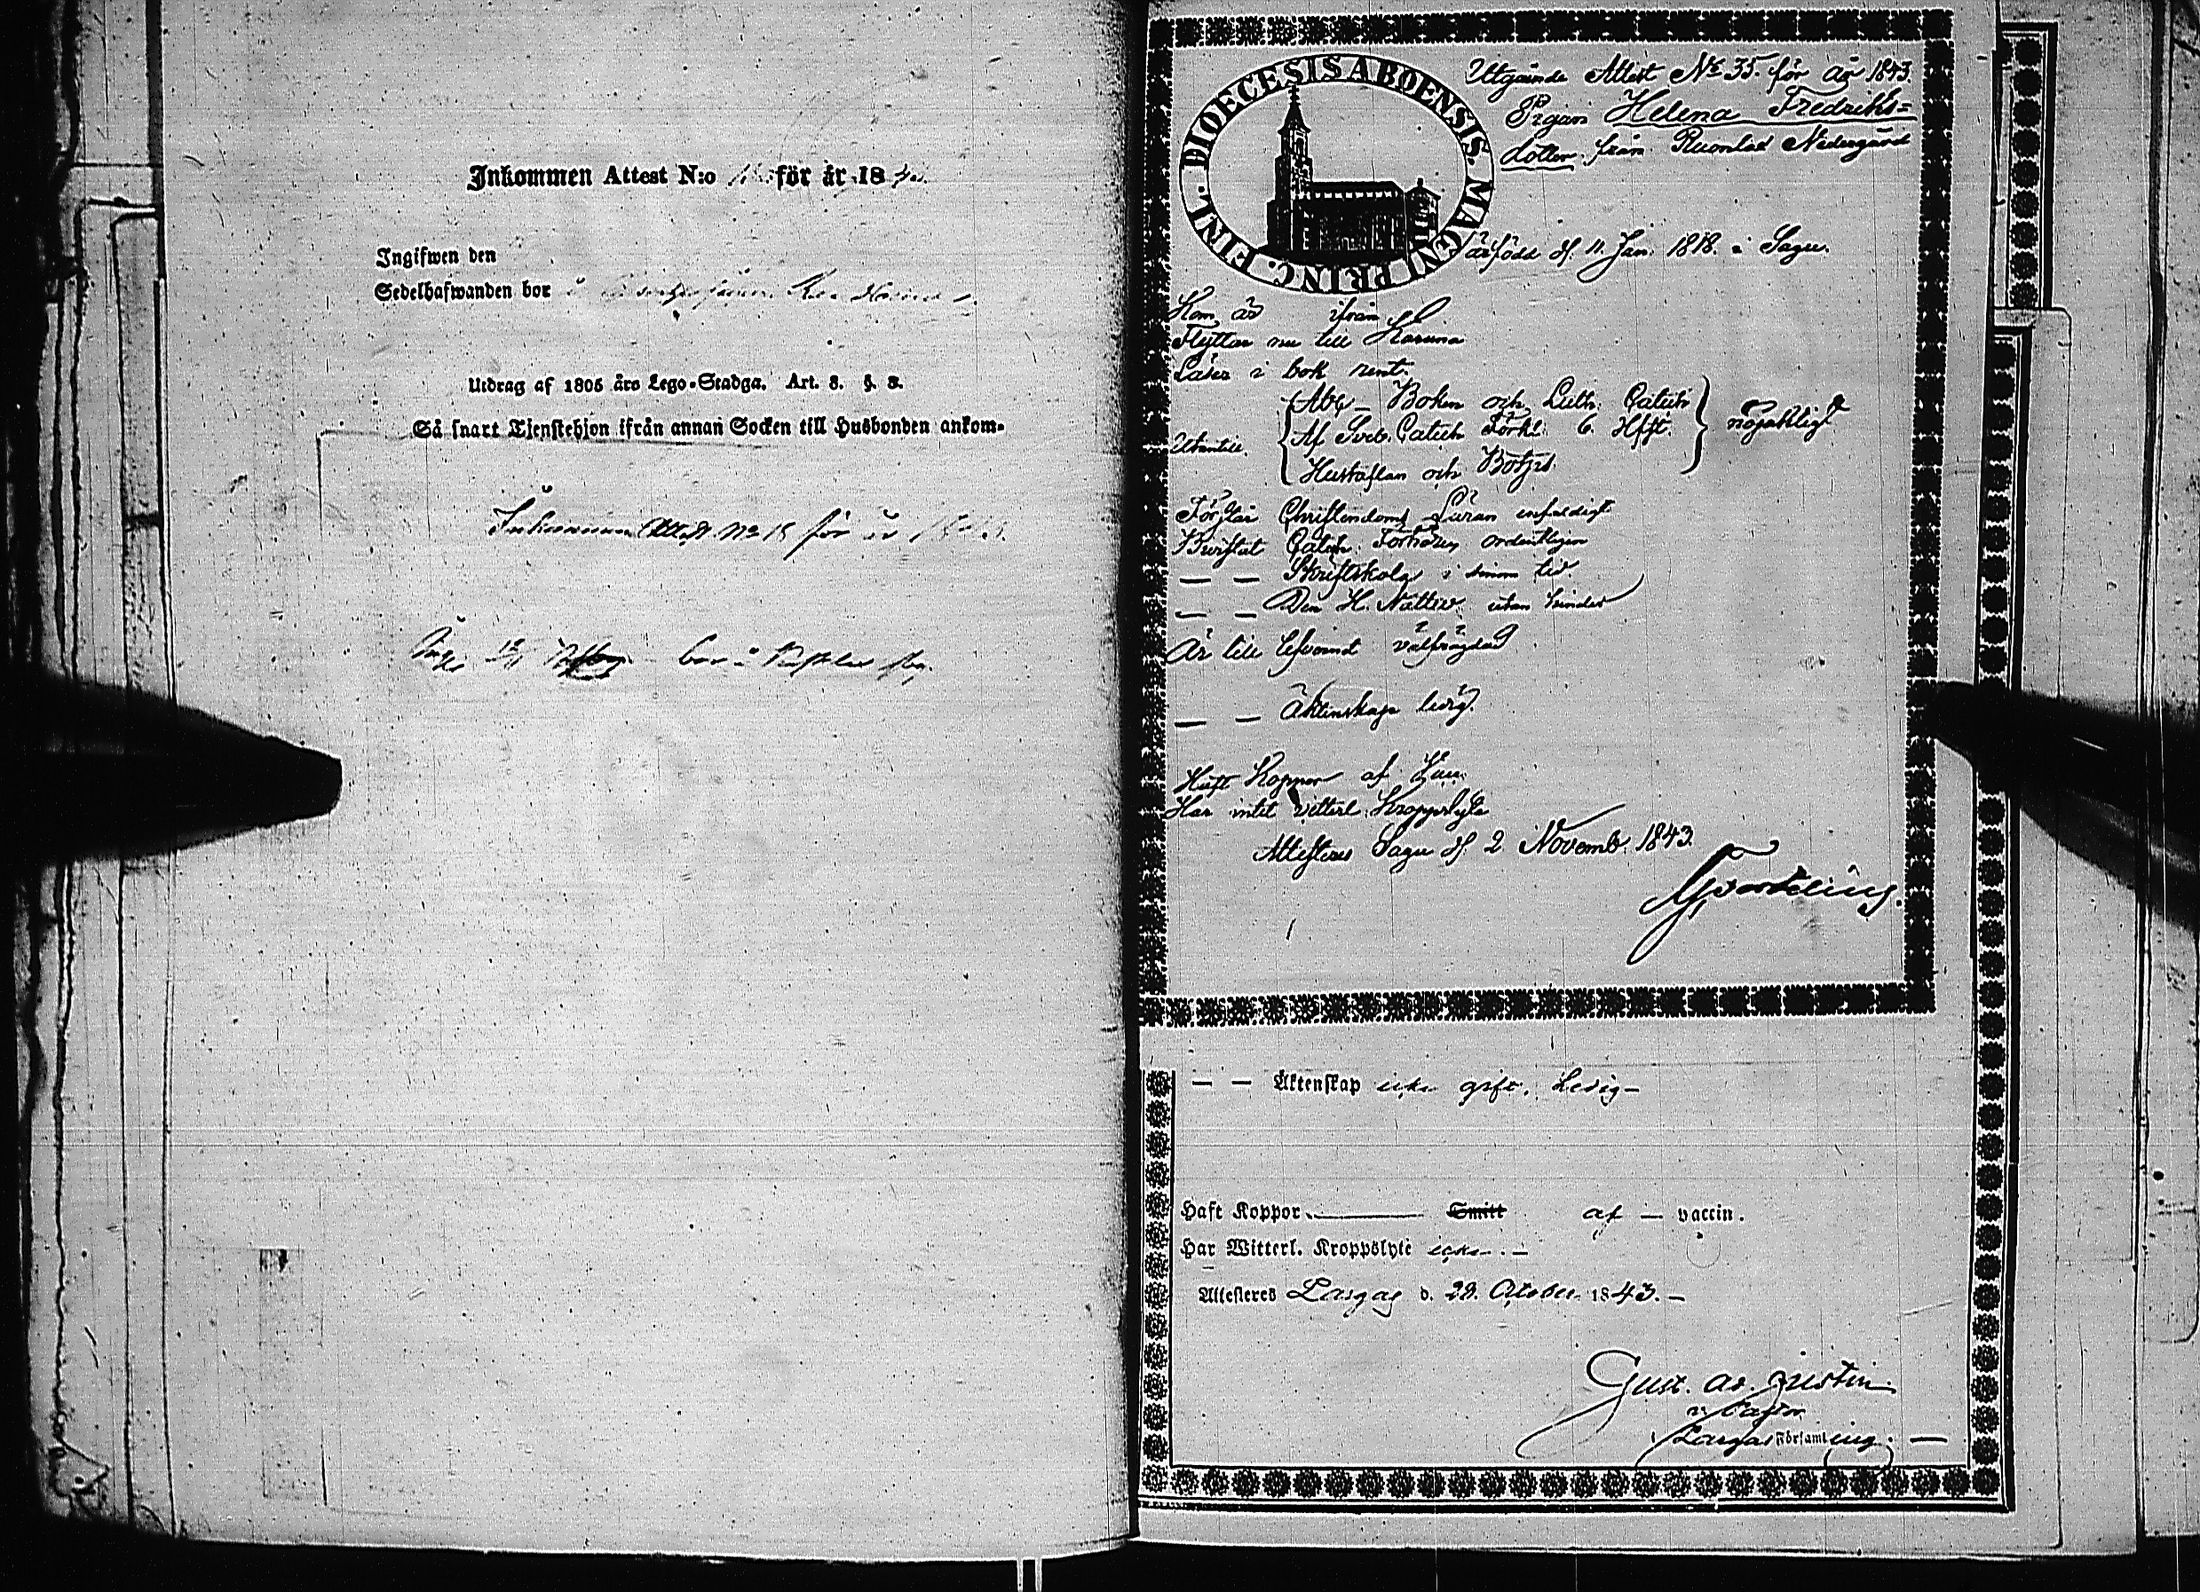 Inkommen Attest N:o för år 184
Ingifwen den
Sedelhafwanden bor
Utdrag af 1805 års Lego-Stadga. Art. 8. §. 8.
Så snart Tjenstehjon ifrån annan Socken till Husbonden ankom-
Inkommen Attest No 18 för år
bor i
DIOECESIS ABOENSIS. MAGNI PRINC. FINL.
Utgående Attest No 35. för år 1843.
Pigan Helena Fredriks=
dotter från Nedergård
är född d. 11. Jan. 1818. i Sagu.
Kom år ifrån
Flyttar nu till Karuna
Läser i bok rent.
Utantill. Abc-Boken och Luth. Catech.
Af Sveb. Catech. Förkl. 6. Hfst. nöjaktligt
Hustaflan och
Förstår Christendoms Läran enfaldigt
Bewistat Catech. Förhören ordentligen
— — Skriftskola i sinom tid
— — Den H. Nattv. utan hinder
Är till lefvernet välfrägdad
— — Äktenskap ledig.
Haft Koppor af
Har intet vitterl. Kroppslyte
Attesteras Sagu d. 2 Novemb. 1843.
— — Äktenskap icke gift, Ledig —
Haft Koppor. Smitt af — vaccin.
Har Witterl. Kroppslyte icke. —
Attesteres Pargas d. 29. October 1843. —
Gust. Ad.
v. Pastor
i Pargas Församling. —